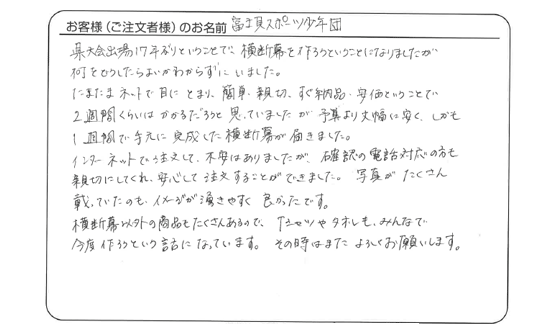 お客様(ご注文者様)のお名前 富士見スポーツ少年団
県大会出場17年ぶりということで、横断幕を作ろうということになりましたが
何をどうしたらよいかわからずにいました。
たまたまネットで目にとまり、簡単・親切、すぐ納品・安価ということで
2週間くらいはかかるだろうと思っていましたが予算より大幅に安く、しかも
1週間で手元に完成した横断幕が届きました。
インターネットでの注文して、不安はありましたが、確認の電話対応の方も
親切にしてくれ、安心して注文することができました。写真がたくさん
載っていたのも、イメージが湧きやすく良かったです。
横断幕以外の商品もたくさんあるので、Tシャツやタオルも、みんなで
今度作ろうという話になっています。その時はまたよろしくお願いします。